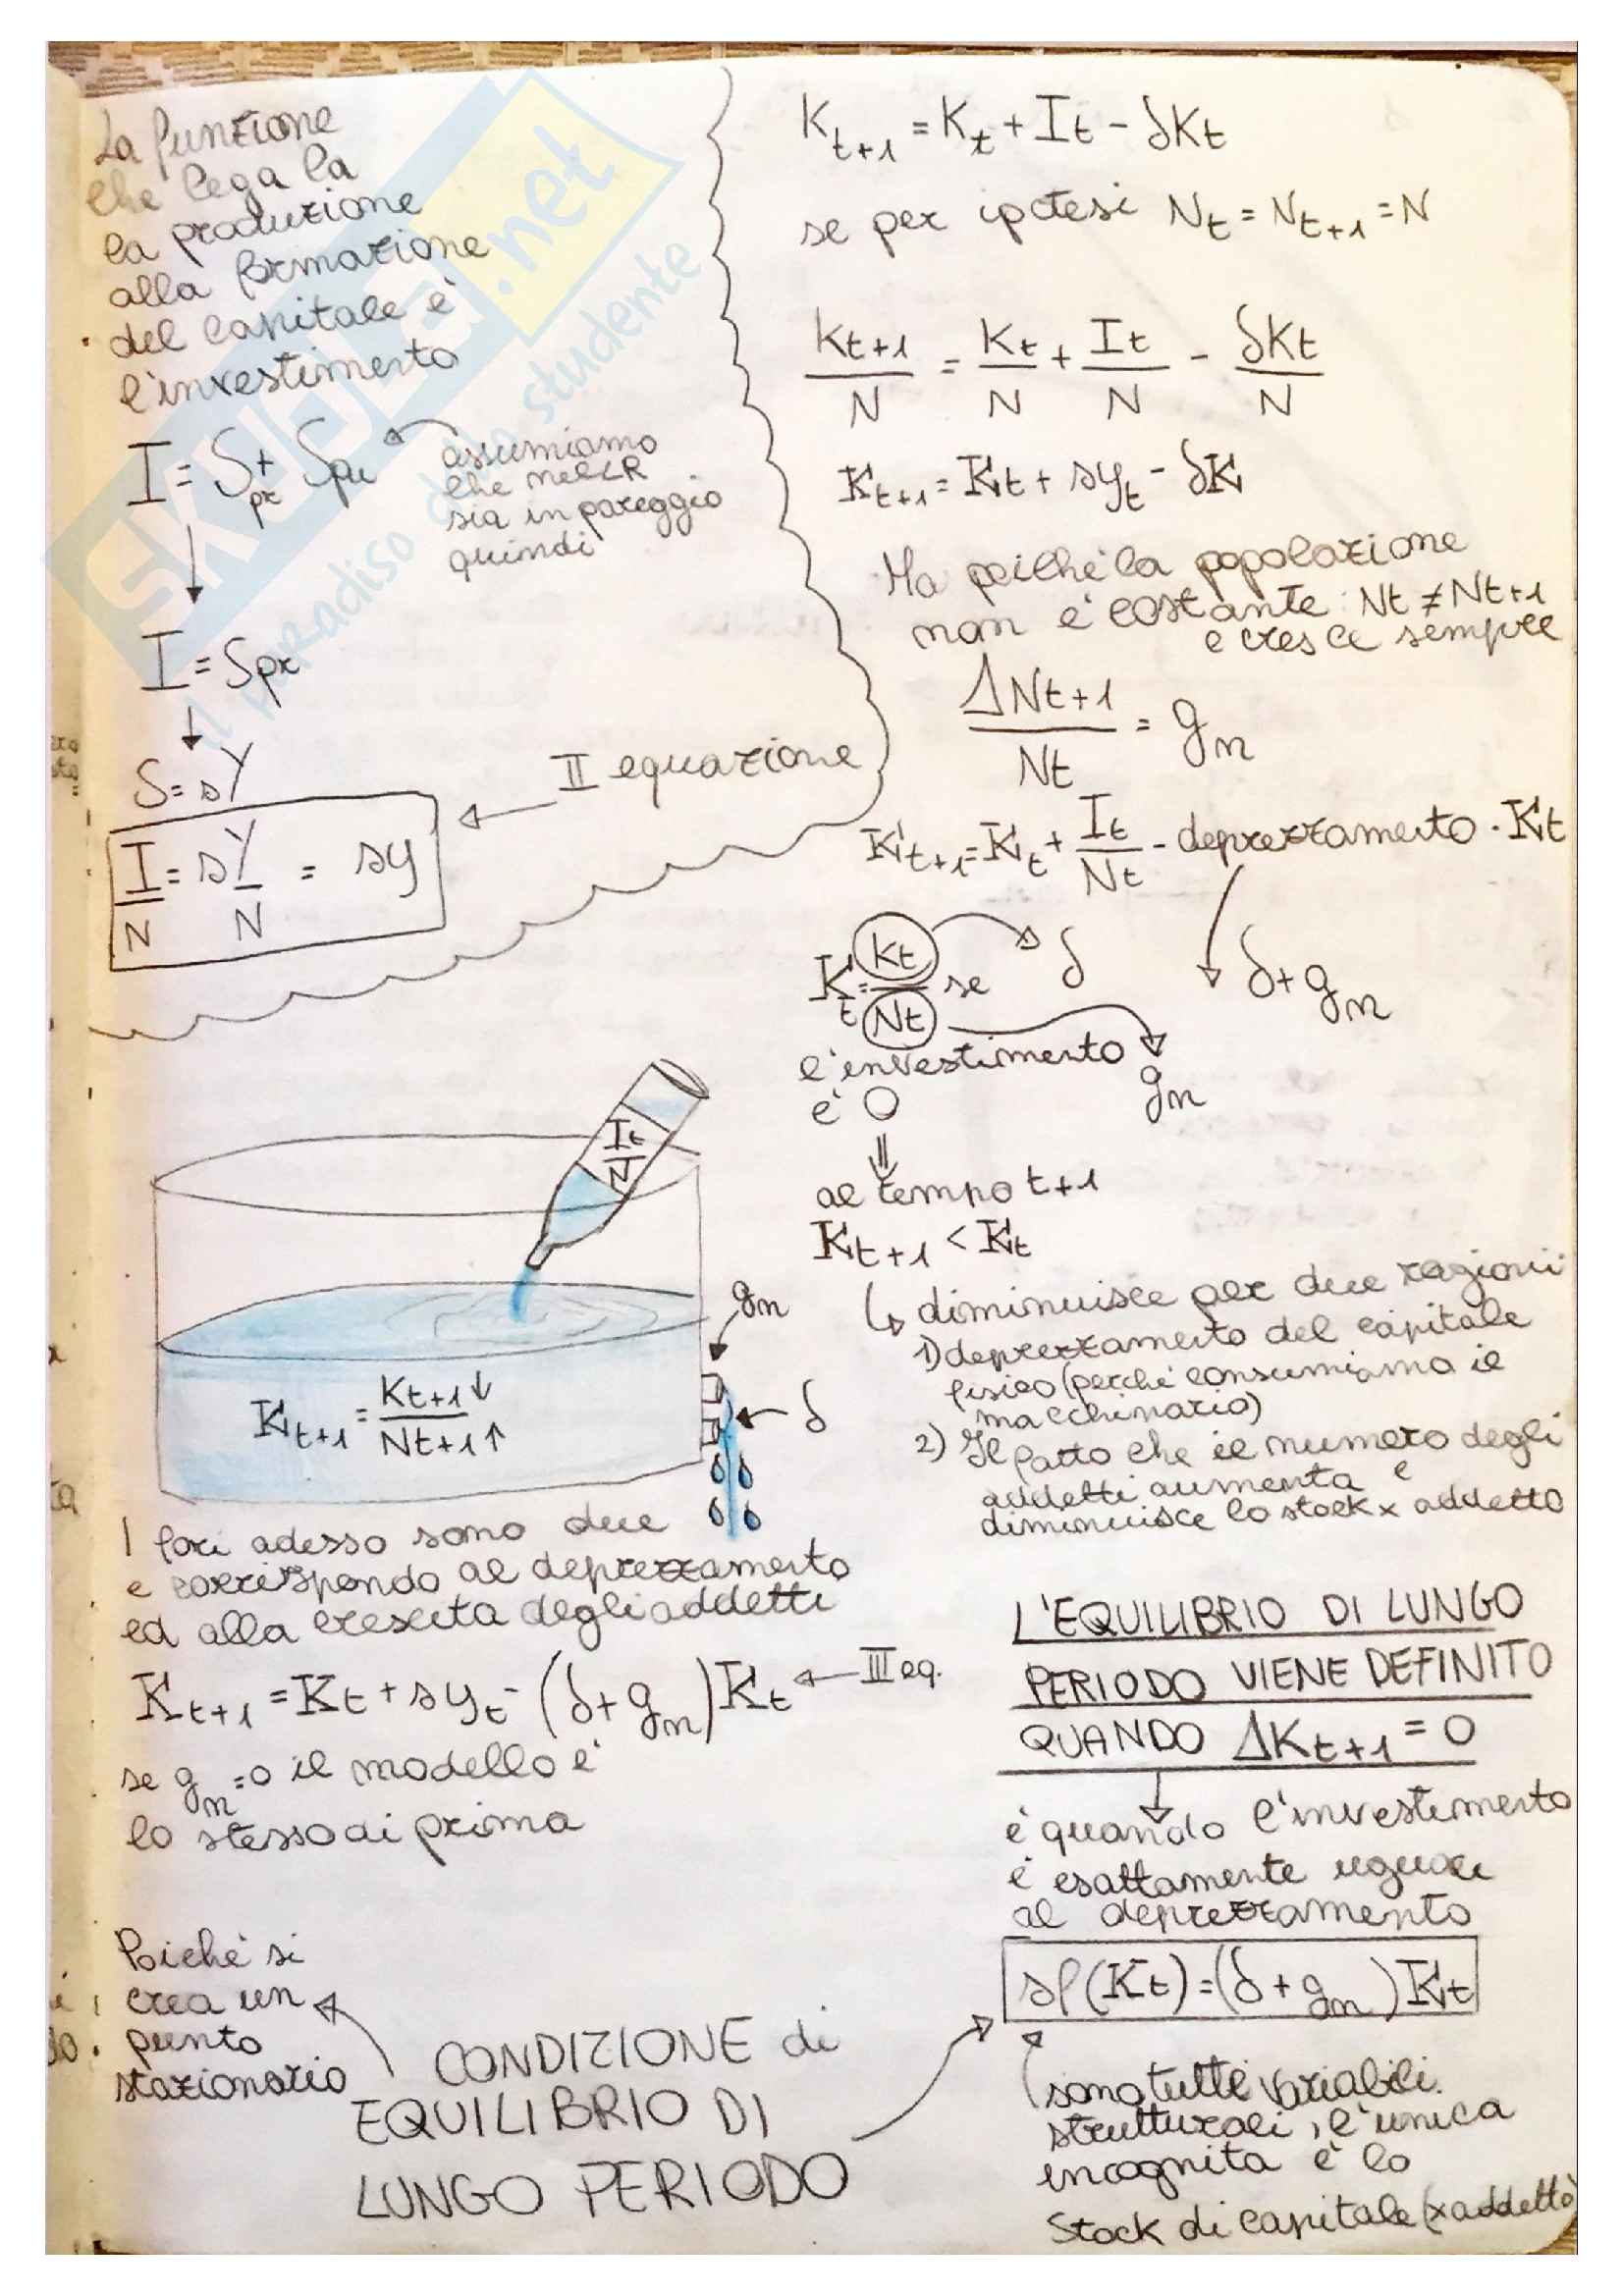 La funzione
che lega la
la produzione
alla formazione
del capitale è
l'investimento
I = Spr + Spu
assumiamo
che nel LR
sia in pareggio
quindi
I = Spr
S = sY
I/N = sY/N = sy
II equazione
Kt+1 = Kt + It - δKt
se per ipotesi Nt = Nt+1 = N
Kt+1/N = Kt/N + It/N - δKt/N
Kt+1 = Kt + syt - δK
Ma poiché la popolazione
non è costante: Nt ≠ Nt+1
e cresce sempre
ΔNt+1/Nt = gn
Kt+1 = Kt + It/Nt - deprezzamento · Kt
δ + gn
Kt = Kt/Nt se
δ
l'investimento
gn
è 0
⇓
al tempo t+1
Kt+1 < Kt
↳ diminuisce per due ragioni
1) deprezzamento del capitale
fisico (perché consumiamo il
macchinario)
2) Il fatto che il numero degli
addetti aumenta e
diminuisce lo stock x addetto
It/N
gn
δ
Kt+1 = Kt+1↓/Nt+1↑
I fori adesso sono due
e corrispondo al deprezzamento
ed alla crescita degli addetti
Kt+1 = Kt + syt - (δ + gn)Kt ← III eq.
se gn = 0 il modello è
lo stesso di prima
L'EQUILIBRIO DI LUNGO
PERIODO VIENE DEFINITO
QUANDO ΔKt+1 = 0
è quando l'investimento
è esattamente uguale
al deprezzamento
sf(Kt) = (δ + gn)Kt
sono tutte variabili
strutturali, l'unica
incognita è lo
Stock di capitale (x addetto)
CONDIZIONE di
EQUILIBRIO DI
LUNGO PERIODO
Poiché si
crea un
punto
stazionario
SKUOLA.net
il paradiso dello studente